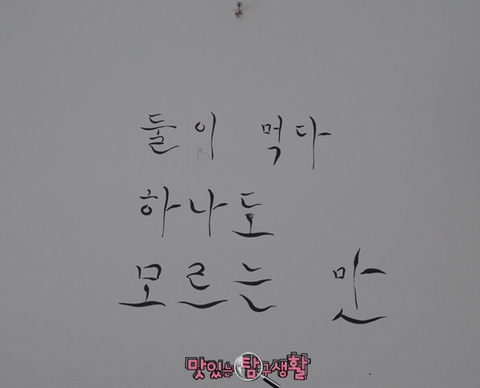 둘이 먹다
하나도
모르는 맛
맛있는 탐구생활